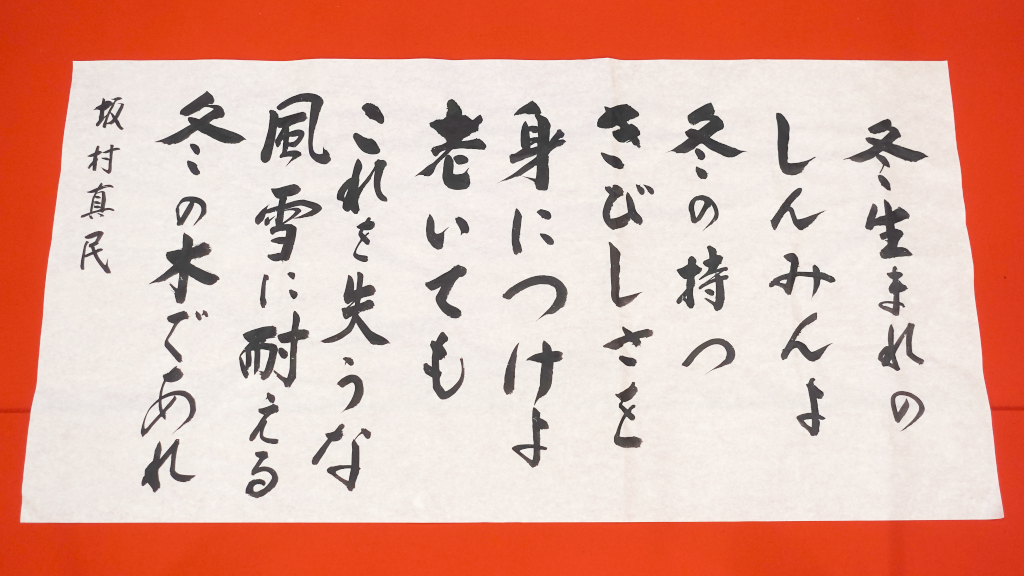 冬生まれの
しんみんよ
冬の持つ
きびしさを
身につけよ
老いても
これを失うな
風雪に耐える
冬の木であれ
坂村真民